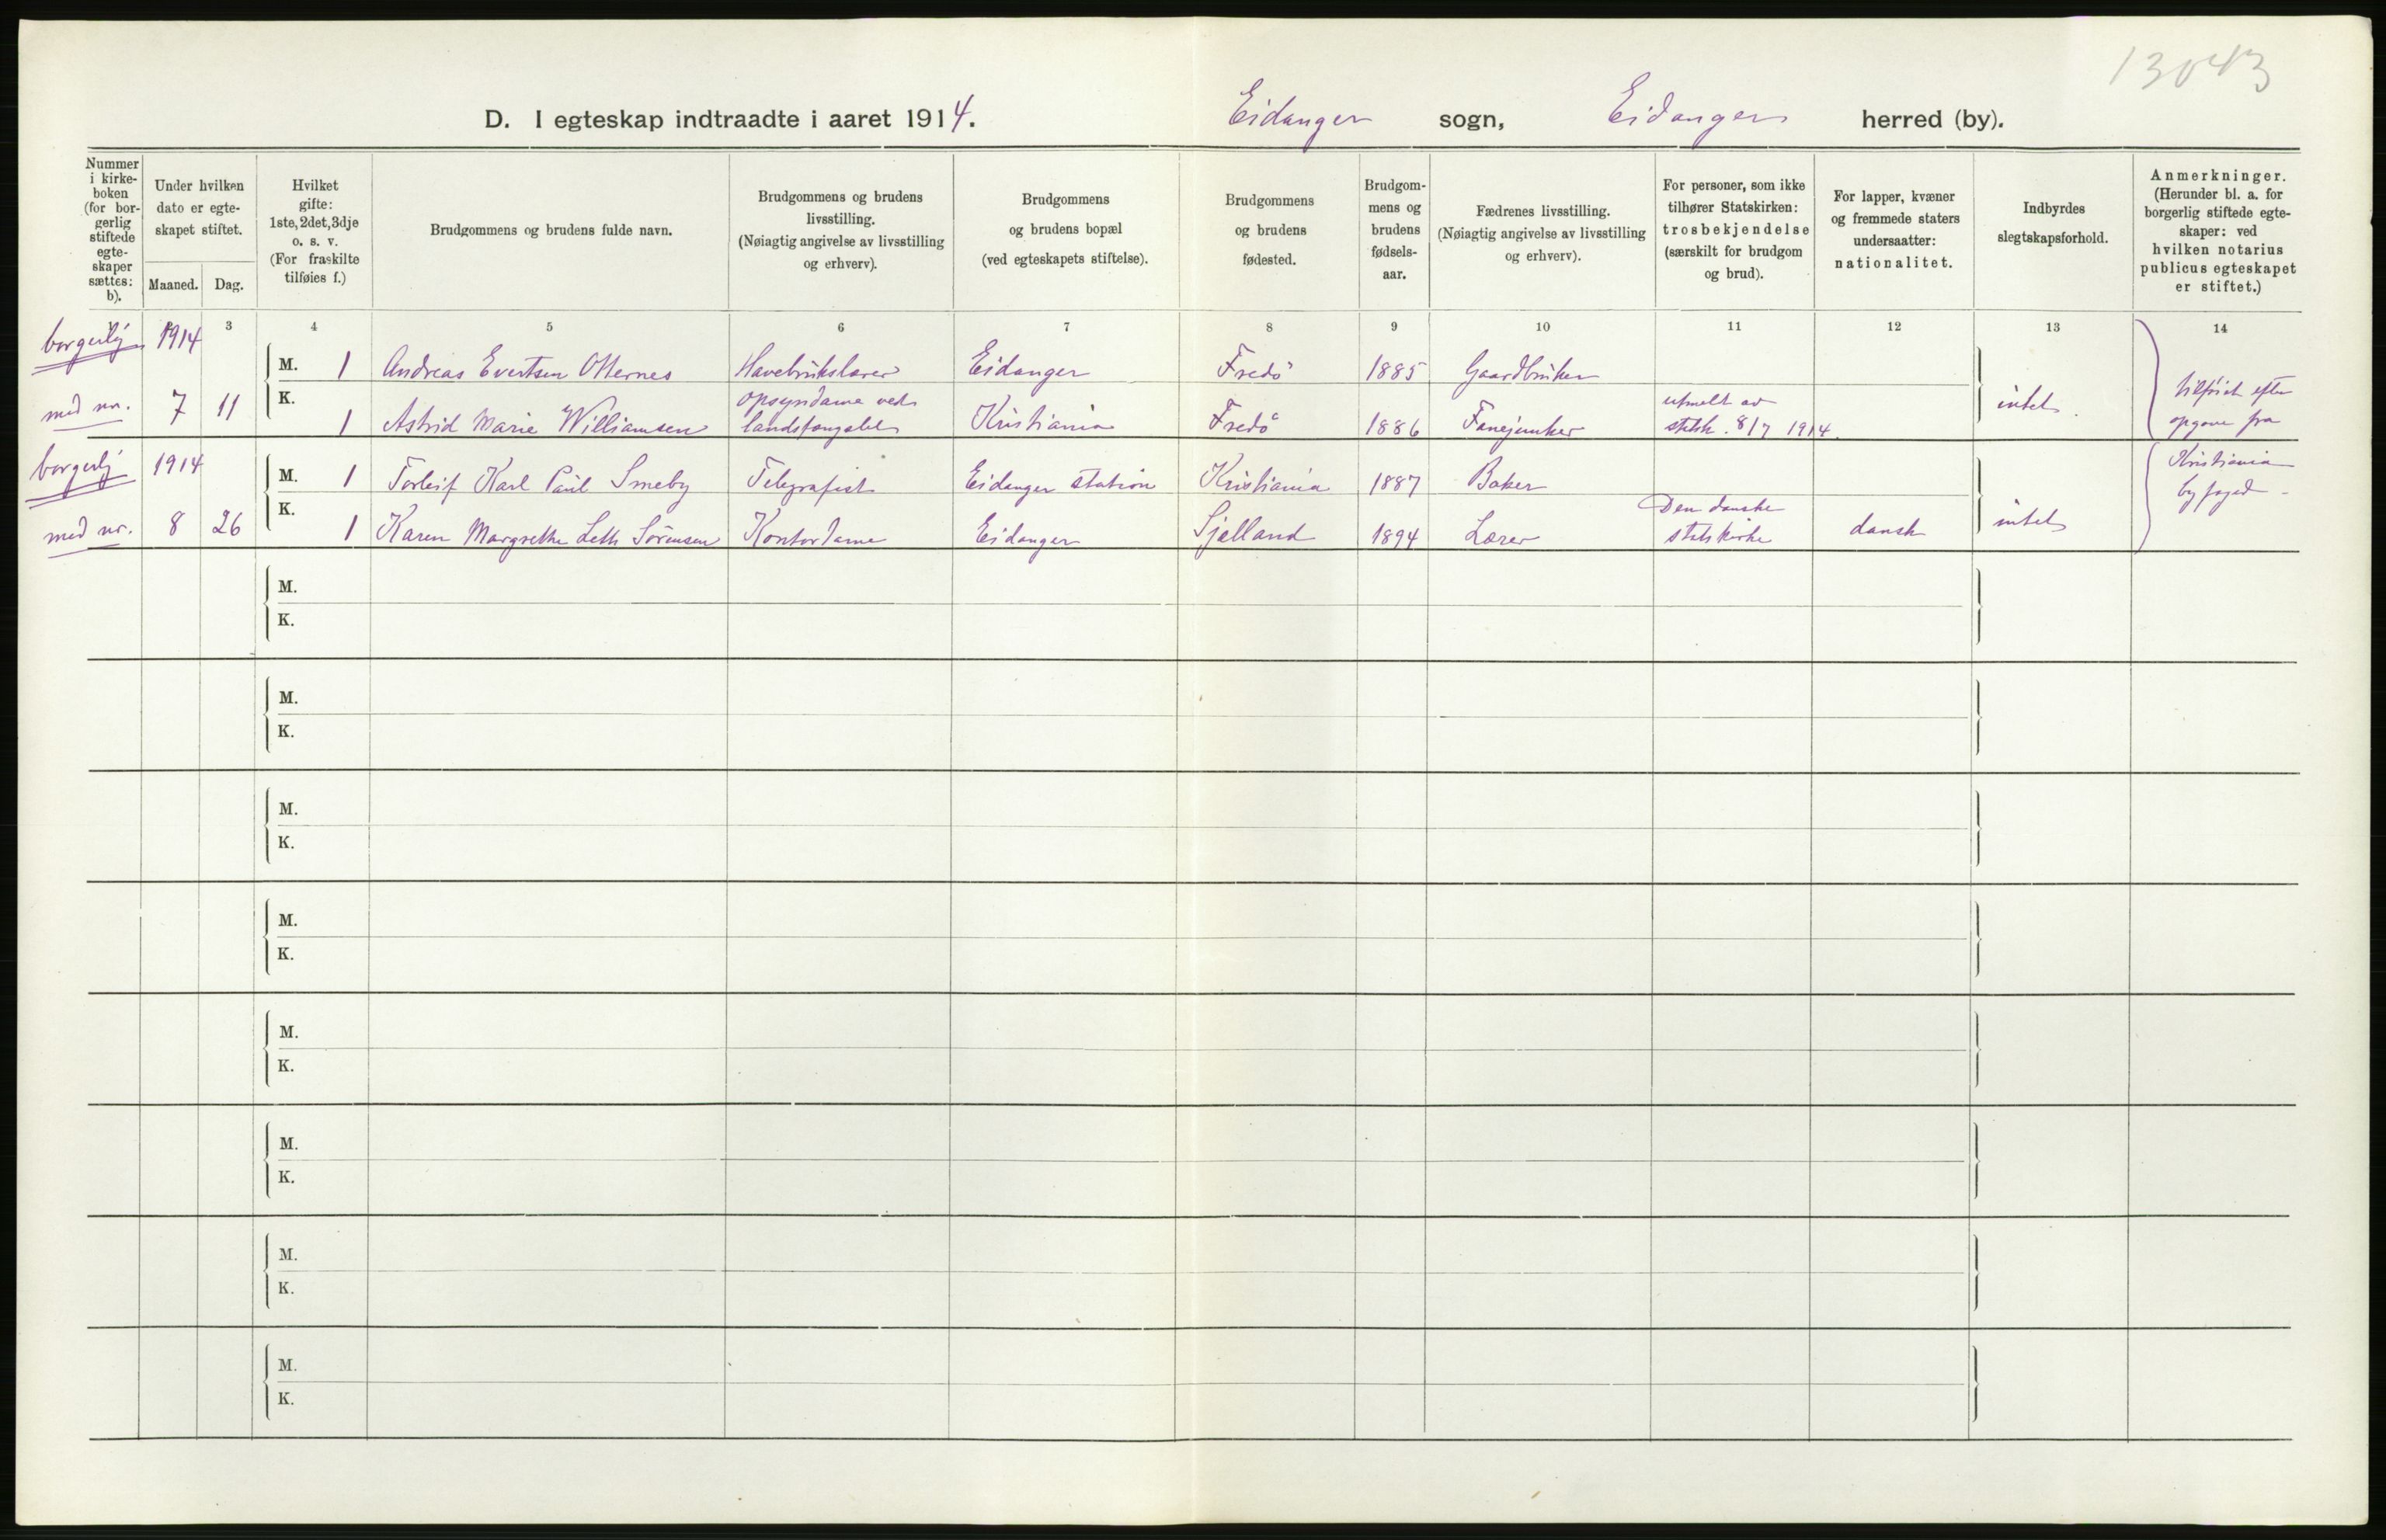 13043
D. I egteskap indtraadte i aaret 1914. Eidanger sogn, Eidanger herred (by).
Nummer
i kirke-
boken
(for bor-
gerlig
stiftede
egte-
skaper
sættes:
b).
Under hvilken
dato er egte-
skapet stiftet.
Maaned. Dag.
Hvilket
gifte:
1ste, 2det, 3dje
o. s. v.
(For fraskilte
tilføies f.)
Brudgommens og brudens fulde navn.
Brudgommens og brudens
livsstilling.
(Nøiagtig angivelse av livsstilling
og erhverv).
Brudgommens
og brudens bopæl
(ved egteskapets stiftelse).
Brudgommens
og brudens
fødested.
Brudgom-
mens og
brudens
fødsels-
aar.
Fædrenes livsstilling.
(Nøiagtig angivelse av livsstilling
og erhverv).
For personer, som ikke
tilhører Statskirken:
trosbekjendelse
(særskilt for brudgom
og brud).
For lapper, kvæner
og fremmede staters
undersaatter:
nationalitet.
Indbyrdes
slegtskapsforhold.
Anmerkninger.
(Herunder bl. a. for
borgerlig stiftede egte-
skaper: ved
hvilken notarius
publicus egteskapet
er stiftet.)
3 4 5 6 7 8 9 10 11 12 13 14
borgerlig 1914
M. 1 Andreas Evertsen Otternes Havebrukslærer Eidanger Fredö 1885 Gaardbruker
K. opsynsdame ved utmelt av
med nr. 7 11 1 Astrid Marie Williamsen landsfængslet Kristiania Fredö 1886 Fanejunker statsk. 8/7 1914. intet.
tilföiet efter
opgave fra
Kristiania
byfoged -
borgerlig 1914
M. 1 Torleif Karl Paul Smeby Telegrafist Eidanger station Kristiania 1887 Baker
K. Den danske
med nr. 8 26 1 Karen Margrethe Leth Sörensen Kontordame Eidanger Sjælland 1894 Lærer statskirke dansk intet
M.
K.
M.
K.
M.
K.
M.
K.
M.
K.
M.
K.
M.
K.
M.
K.